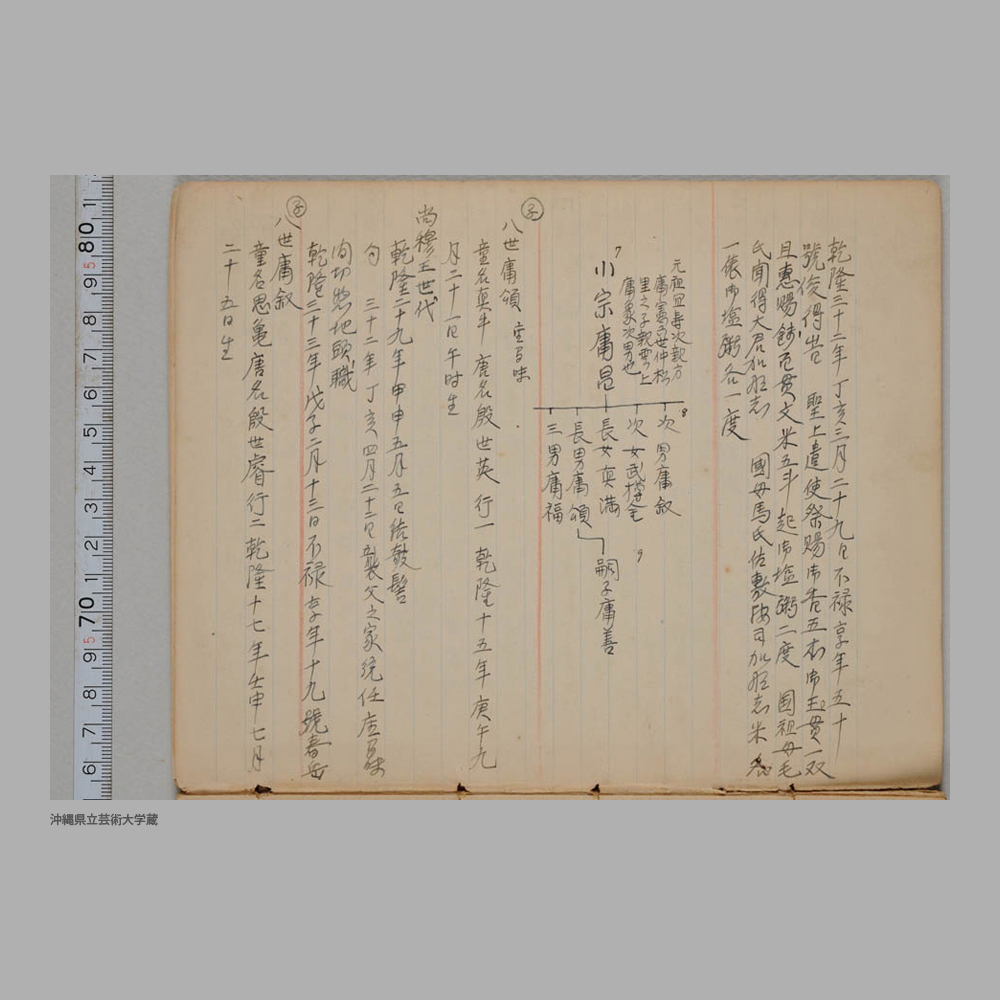 乾隆三十二年丁亥三月二十九日不禄享年五十
號俊得岩 聖上遣使祭賜御香五本御玉貫一双
且恵賜銭百貫文米五斗起御塩粥二度 国祖母毛
氏聞得大君加那志 國母馬氏佐敷按司加那志米各
一俵御塩粥各一度
元祖 寿次親方
庸憲五世仲松
里之子親雲上
庸象次男也
7
小宗庸昌
8
次男庸叙
次女武樽金
長女真満
長男庸頌
三男庸福
9
嗣子庸善
子
八世庸頌
童名真牛 唐名殷世英 行一 乾隆十五年庚午九
月二十一日午時生
尚穆王世代
乾隆二十九年甲申五月五日結敧髻
仝 三十二年丁亥四月二十二日襲父之家統任
間切惣地頭職
乾隆三十三年戊子二月十三日不禄享年十九號春岳
子
八世庸叙
童名思亀唐名殷世睿行二乾隆十七年壬申七月
二十五日生
80
70
沖縄県立芸術大学蔵